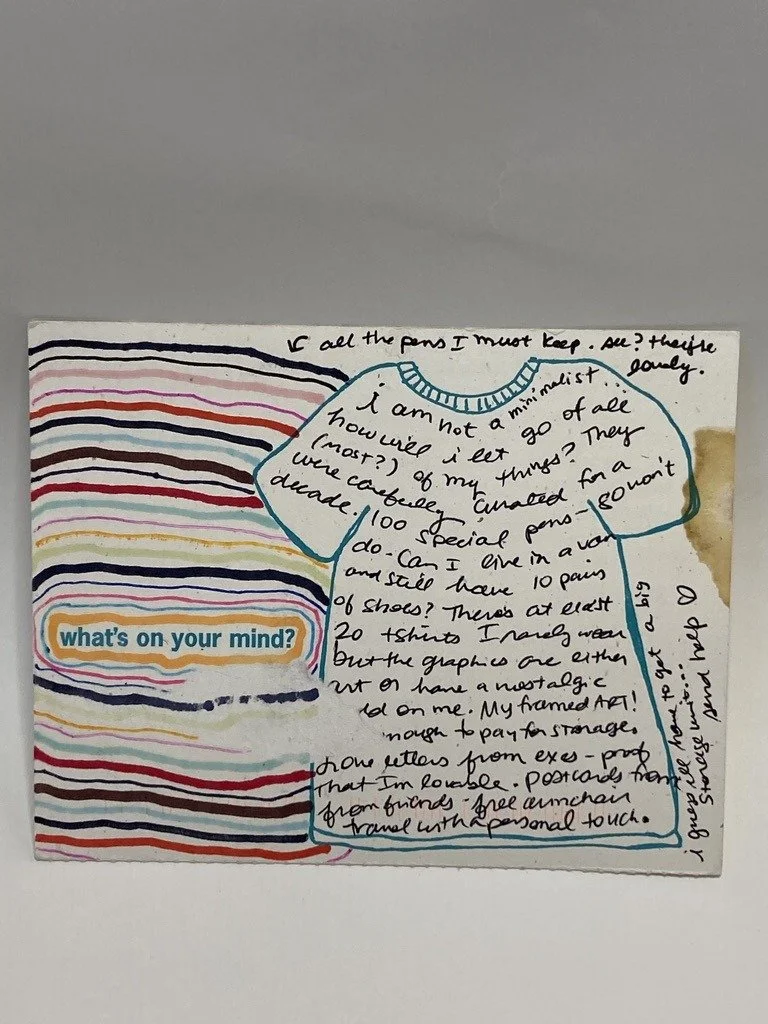 ↙ all the pens I must keep. see? they're
lovely.
i am not a minimalist...
how will i let go of all
(most?) of my things? They
were carefully curated for a
decade. 100 special pens - 80 won't
do. Can I live in a van
and still have 10 pairs
of shoes? There's at least
20 tshirts I rarely wear
but the graphics are either
or have a nostalgic
on me. My framed ART!
to pay for storage.
love letters from exes - proof
That I'm lovable. Postcards from
from friends - free armchair
travel with a personal touch.
what's on your mind?
i guess ill have to get a big
storage unit...
send help ♡